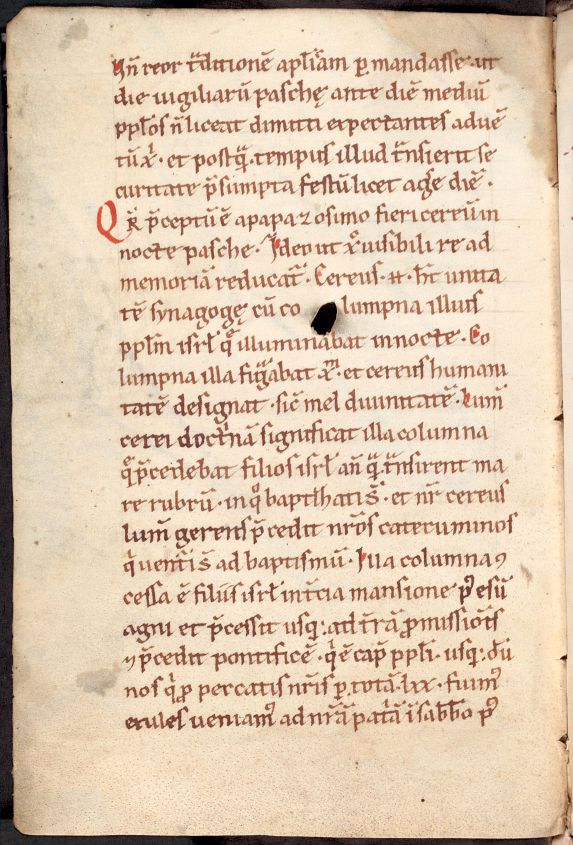 Hn̄ reor t̄ditionē apl̄iam ꝑ mandasse · ut
die uigiliarū paschę ante diē mediū
ppl̄os n̄ liceat dimitti expectantes aduē
tū xͥ · et postꝗ̄ · tempus illud t̄nsierit se
curitate p̄sumpta festū licet agͤe diē ·
Qͣꝛ p̄ceptū ē a papa zosimo fieri cereū in
nocte pasche · Ideo ut xͦ uisibili re ad
memoriā reducat᷑ · Cereus · ħt unita
tē synagogę cū co lumpna illius
ppl̄m isrl̄ q̄ illuminabat in nocte · Co
lumpna illa figͣabat xᷟ · et cereus humani
tatē designat · sic̄ mel diuinitatē · Lum̄
cerei doctͥnā significat illa columna
q̄ p̄cedebat filios isrl̄ an̄ ꝗ̄ t̄nsirent ma
re rubrū · in qͦ baptihatiſ̄ · et nr̄ cereus
lum̄ gerens p̄cedit nr̄os catecuminos
qͥ uentͥiſ̄ ad baptismū · Illa columna ꝯ
cessa ē filiis isrl̄ in tͥcia mansione p᷒ esū
agni et p̄cessit usq; ad t̄rā ꝓmissiōīs
ꝯ p̄cedit pontificē · qͥ ē cap᷒ ppl̄i · usq; dū
nos qͥ ꝓ peccatis nr̄is ꝑ totā · lxx · fuim᷒
exules ueniam᷒ ad nr̄ā patͥā ī sabb̄o p᷒